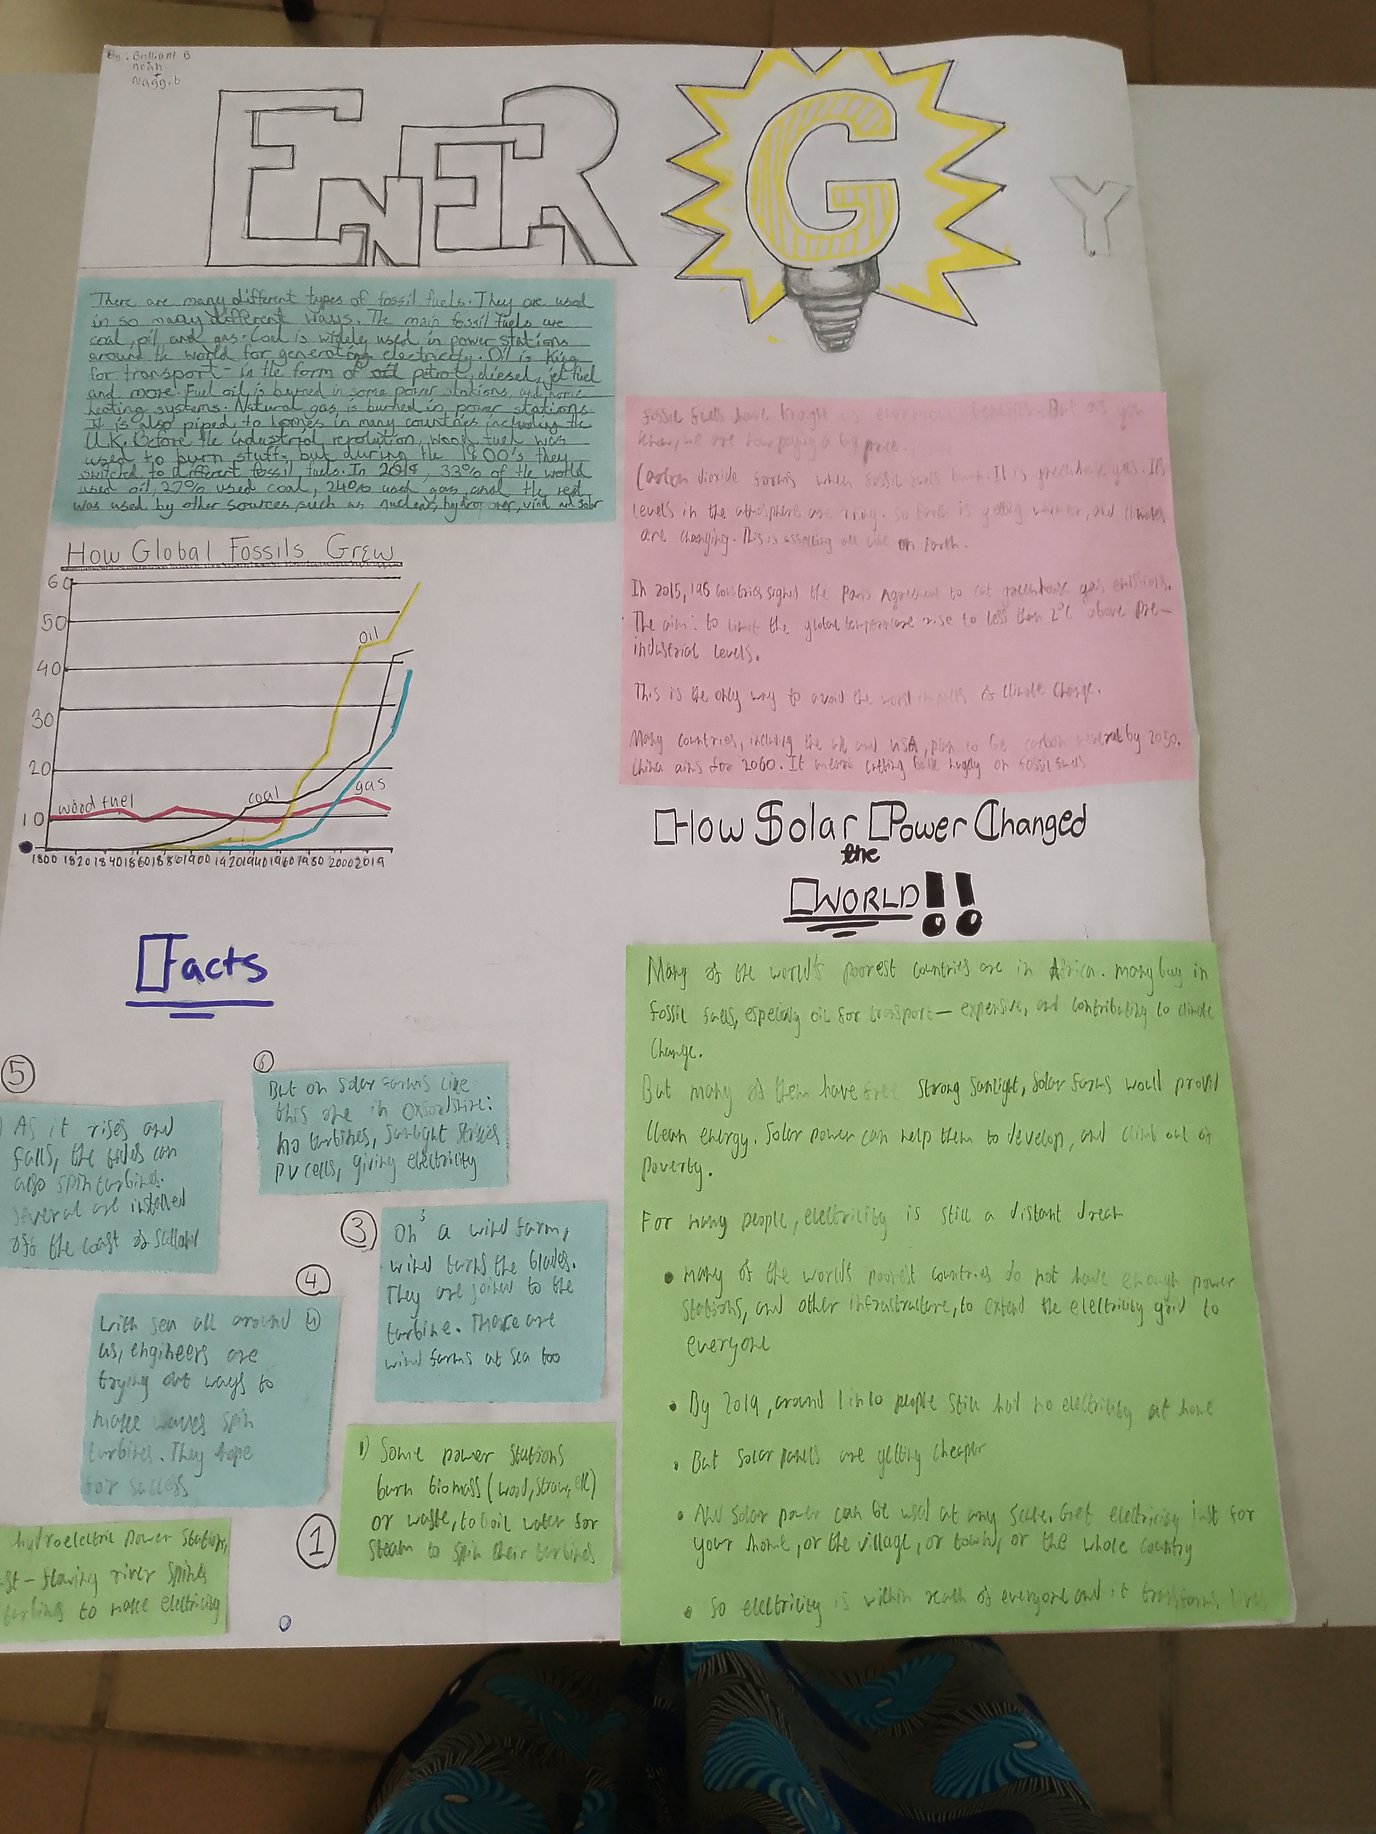 By: Brilliant B
Noah
+
Naggib
ENERGY
There are many different types of fossil fuels. They are used
in so many different ways. The main fossil fuels are
coal, oil and gas. Coal is widely used in power stations
around the world for generating electricity. Oil is king
for transport - in the form of oil petrol, diesel, jet fuel
and more. Fuel oil is burned in some power stations, and home
heating systems. Natural gas is burned in power stations
It is also piped to homes in many countries including the
U.K. Before the industrial revolution, wood fuel was
used to burn stuff, but during the 1800's they
switched to different fossil fuels. In 2019, 33% of the world
used oil, 27% used coal, 24% used gas and the rest
was used by other sources, such as nuclear, hydropower, wind and solar
Fossil fuels have brought us enormous benefits. But as you
know, we are now paying a big price.
Carbon dioxide forms when fossil fuels burn. It is greenhouse gas. Its
levels in the atmosphere are rising. so Earth is getting warmer, and climates
are changing. This is affecting all life on Earth.
In 2015, 196 countries signed the Paris Agreement to cut greenhouse gas emissions.
The aim: to limit the global temperature rise to less than 2°C above pre-
industrial levels.
This is the only way to avoid the worst impacts of climate change.
Many countries, including the UK and USA, plan to be carbon neutral by 2050.
China aims for 2060. It means cutting back hugely on fossil fuels
How Global Fossils Grew
60
50
40
30
20
10
Oil
wood fuel
coal
gas
1800 1820 1840 1860 1880 1900 1920 1940 1960 1980 2000 2019
How Solar Power Changed
the
WORLD!!
Many of the world's poorest countries are in Africa. many buy in
fossil fuels, especially oil for transport — expensive, and contributing to climate
change.
But many of them have free strong sunlight, Solar farms would provid
clean energy. Solar power can help them to develop, and climb out of
poverty.
For many people, electricity is still a distant dream
• many of the worlds poorest countries do not have enough power
stations, and other infrastructure, to extend the electricity grid to
everyone
• By 2019, around 1 in 10 people still had no electricity at home
• But solar panels are getting cheaper
• And solar power can be used at any scale. Get electricity just for
your home, or the village, or town, or the whole country
• So electricity is within reach of everyone and it transforms lives
Facts
5
As it rises and
falls, the tides can
also spin turbines.
Several are installed
off the coast of Scotland
6
But on solar farms like
this one in Oxfordshire:
no turbines, sunlight strikes
PV cells, giving electricity
3
On a wind farm,
wind turns the blades.
They are joined to the
turbine. There are
wind farms at sea too
4
With sea all around
us, engineers are
trying out ways to
make waves spin
turbines. They hope
for success
1
1) Some power stations
burn biomass (wood, straw, etc)
or waste, to boil water for
steam to spin their turbines
hydroelectric power station,
flowing river spins
turbines to make electricity